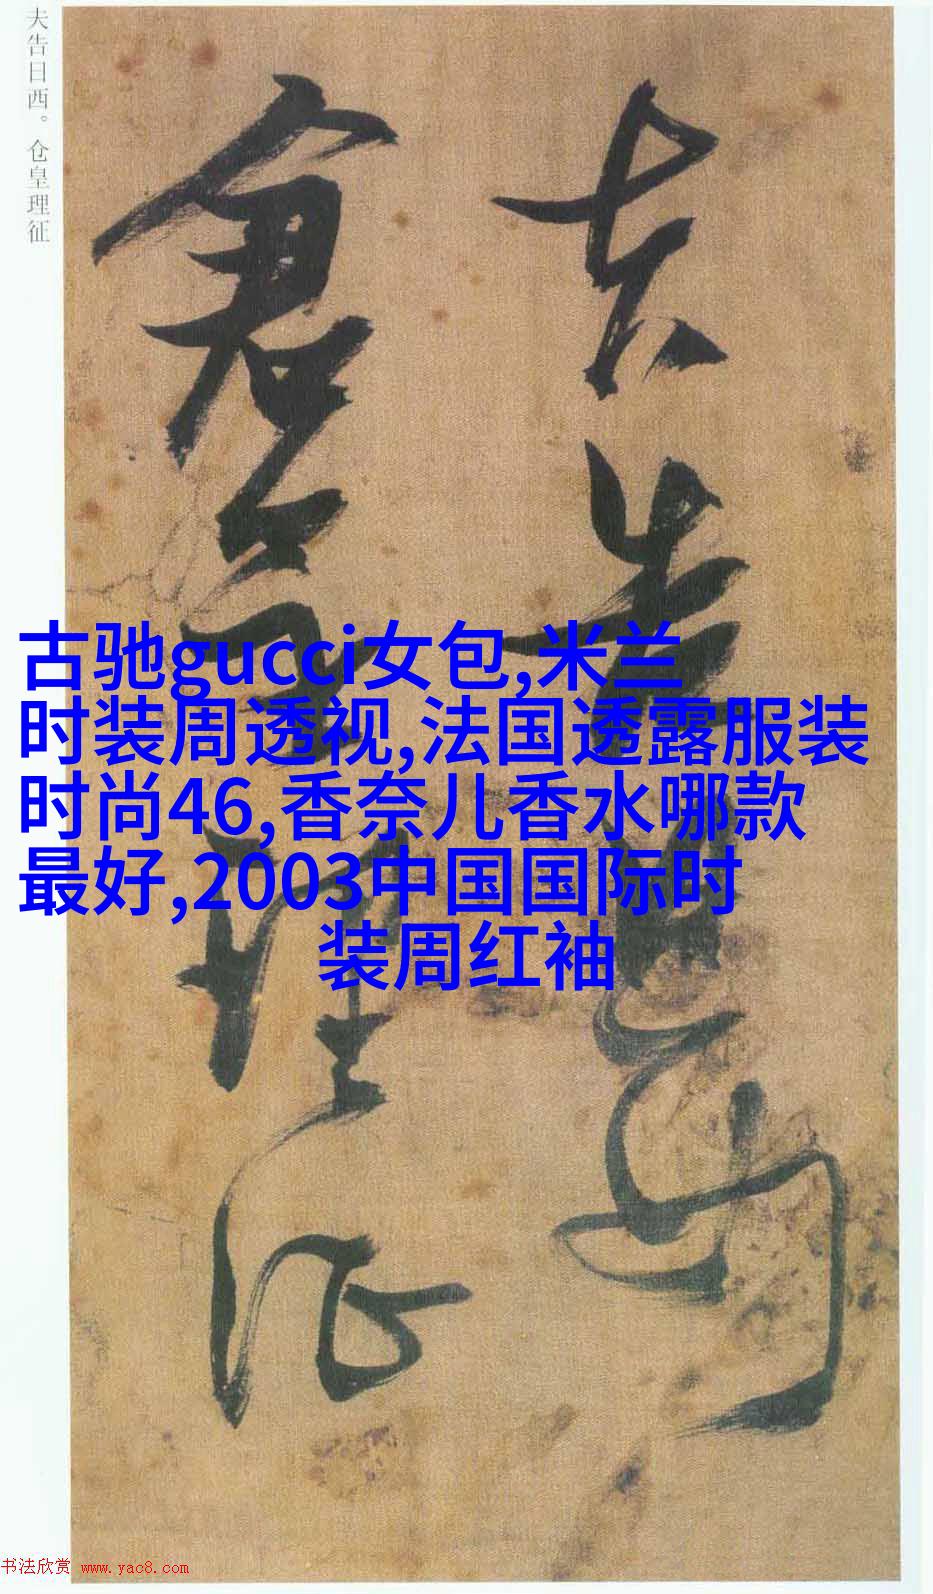 夫告日西。仓皇理征
夫告日西
仓皇理征
古驰gucci女包,米兰
时装周透视,法国透露服装
时尚46,香奈儿香水哪款
最好,2003中国国际时
装周红袖
书法欣赏 www.yac8.com